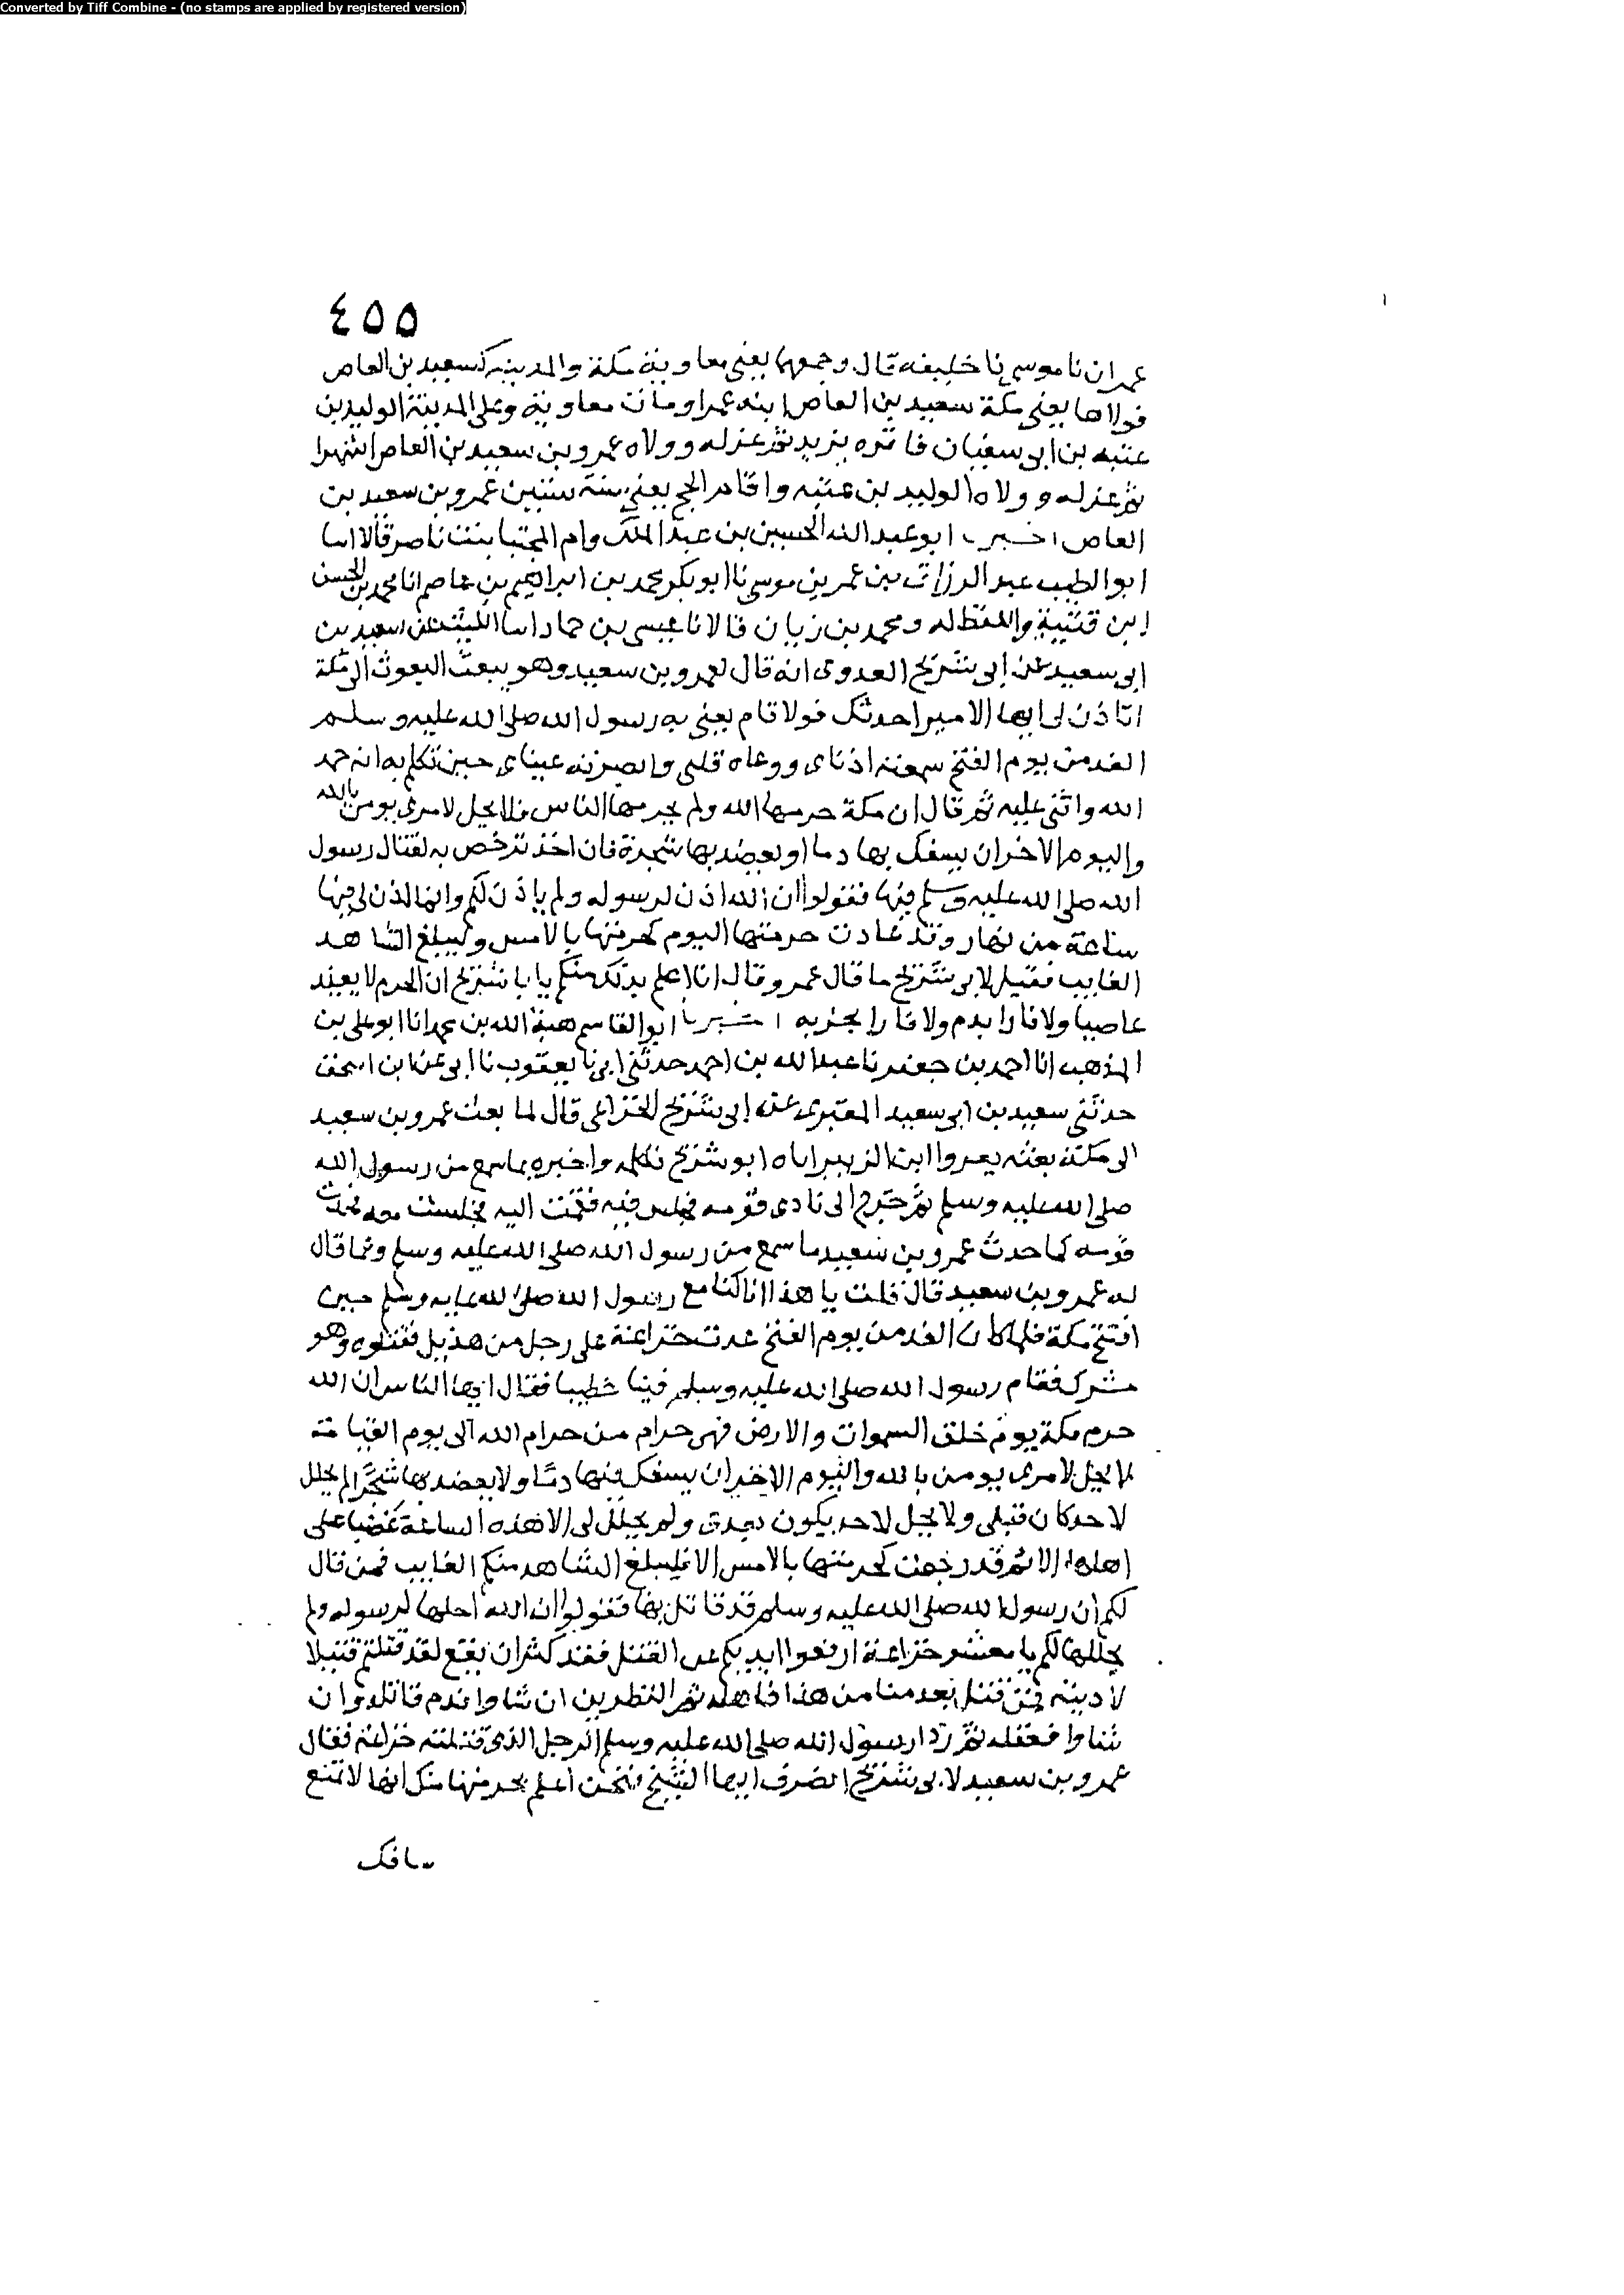 Converted by Tiff Combine - (no stamps are applied by registered version)
٤٥٥
عمران نا موسى نا خليفه قال وجمعها يعني معاوية مكة والمدينة لسعيد بن العاص
فولاها يعني مكة سعيد بن العاص ابنه عمرا ومات معاوية وعلى المدينة الوليد بن
عتبه بن ابي سفيان فاقره يزيد ثم عزله وولاه عمرو بن سعيد بن العاص اشهرا
ثم عزله وولاه الوليد بن عتبه واقام الحج يعني سنة ستين عمرو بن سعيد بن
العاص اخبرنا ابو عبد الله الحسين بن عبد الملك وام المجتبا بنت ناصر قالا انا
ابو الطيب عبد الرزاق بن عمر بن موسى نا ابو بكر محمد بن ابراهيم بن عاصم انا محمد بن الحسن
ابن قتيبة واللفظ له ومحمد بن زبان قالا نا عيسى بن حماد انا الليث عن سعيد بن
ابي سعيد عن ابي شريح العدوى انه قال لعمرو بن سعيد وهو يبعث البعوث الى مكة
اتاذن لى ايها الامير احدثك قولا قام يعني به رسول الله صلى الله عليه وسلم
الغد من يوم الفتح سمعته اذناى ووعاه قلبي وابصرته عيناى حين تكلم به انه حمد
الله واثنى عليه ثم قال ان مكة حرمها الله ولم يحرمها الناس فلا يحل لامرئ يومن بالله
واليوم الاخر ان يسفك بها دما او يعضد بها شجرة فان احد ترخص به لقتال رسول
الله صلى الله عليه وسلم فيها فقولوا ان الله اذن لرسوله ولم ياذن لكم وانما اذن لى فيها
ساعة من نهار وقد عادت حرمتها اليوم كحرمتها بالامس وليبلغ الشاهد
الغايب فقيل لابي شريح ما قال عمرو قال انا اعلم بذلك منكم يابا شريح ان الحرم لا يعيذ
عاصيا ولا فارا بدم ولا فارا بجزيه اخبرنا ابو القاسم هبة الله بن محمد انا ابو علي بن
المذهب انا احمد بن جعفر نا عبد الله بن احمد حدثني ابي نا يعقوب نا ابي عن ابن اسحق
حدثني سعيد بن ابي سعيد المقبرى عن ابي شريح الخزاعى قال لما بعث عمرو بن سعيد
الى مكة بعثه يعزوا ابن الزبير اتاه ابو شريح فكلمه واخبره بما سمع من رسول الله
صلى الله عليه وسلم ثم خرج الى نادى قومه فجلس فيه فقمت اليه فجلست معه فحدث
قومه كما حدث عمرو بن سعيد ما سمع من رسول الله صلى الله عليه وسلم وما قال
له عمرو بن سعيد قال قلت يا هذا انا كنا مع رسول الله صلى الله عليه وسلم حين
افتتح مكة فلما كان الغد من يوم الفتح عدت خزاعة على رجل من هذيل فقتلوه وهو
مشرك فقام رسول الله صلى الله عليه وسلم فينا خطيبا فقال ايها الناس ان الله
حرم مكة يوم خلق السموات والارض فهى حرام من حرام الله الى يوم القيامة
لا يحل لامرى يومن بالله واليوم الاخر ان يسفك فيها دما ولا يعضد بها شجرا لم يحلل
لاحد كان قبلى ولا يحل لاحد يكون بعدى ولم يحلل لى الا هذه الساعة غضبا على
اهلها الا ثم قد رجعت كحرمتها بالامس الا فليبلغ الشاهد منكم الغايب فمن قال
لكم ان رسول الله صلى الله عليه وسلم قد قاتل بها فقولوا ان الله احلها لرسوله ولم
يحللها لكم يا معشر خزاعة ارفعوا ايديكم عن القتل فقد كثر ان يقع لقد قتلتم قتيلا
لادينه فمن قتل بعد مقامى هذا فاهله بخير النظرين ان شاوا فدم قاتله وان
شاوا فعقله ثم ودا رسول الله صلى الله عليه وسلم الرجل الذى قتلته خزاعة فقال
عمرو بن سعيد لابي شريح انصرف ايها الشيخ فنحن اعلم بحرمتها منك انها لا تمنع
سافك